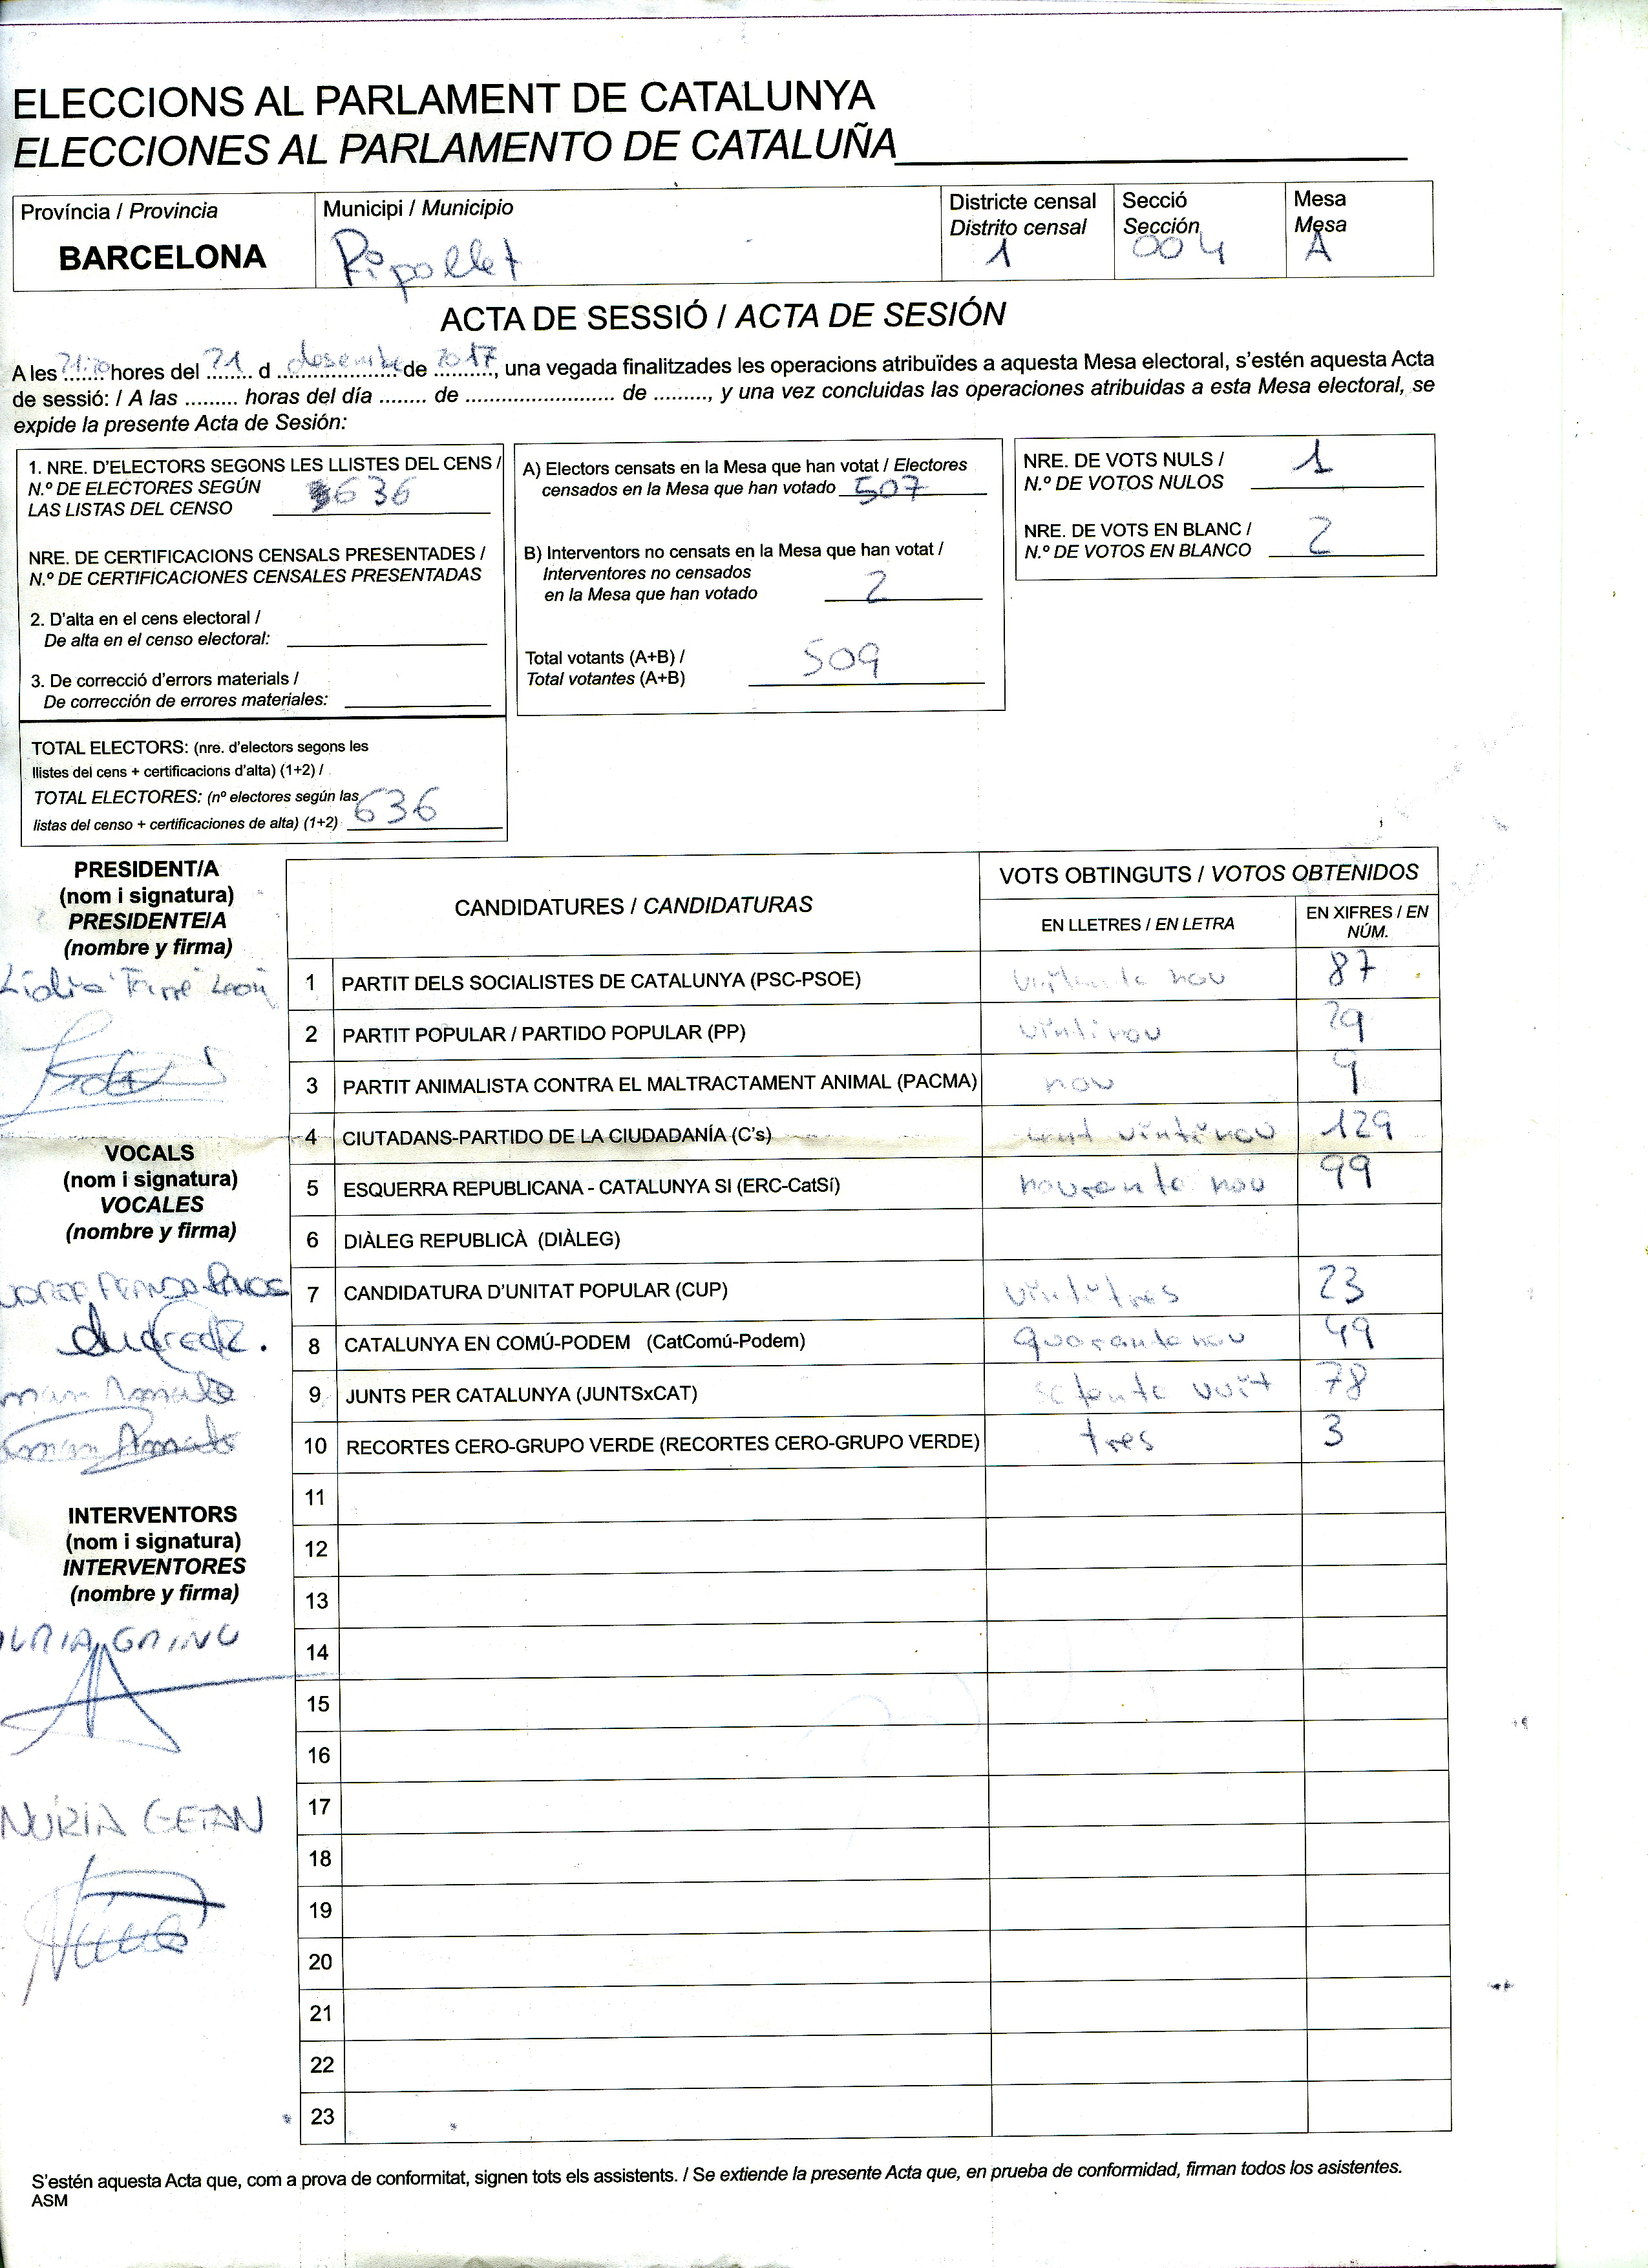 ELECCIONS AL PARLAMENT DE CATALUNYA
ELECCIONES AL PARLAMENTO DE CATALUÑA
Província / Provincia
BARCELONA
Municipi / Municipio
Ripollet
Districte censal
Distrito censal
1
Secció
Sección
004
Mesa
Mesa
A
ACTA DE SESSIÓ / ACTA DE SESIÓN
A les ....... hores del 21 d desembre de 2017, una vegada finalitzades les operacions atribuïdes a aquesta Mesa electoral, s'estén aquesta Acta
de sessió: / A las ......... horas del día ........ de ......................... de ........., y una vez concluidas las operaciones atribuidas a esta Mesa electoral, se
expide la presente Acta de Sesión:
1. NRE. D'ELECTORS SEGONS LES LLISTES DEL CENS /
N.º DE ELECTORES SEGÚN
LAS LISTAS DEL CENSO 636
NRE. DE CERTIFICACIONS CENSALS PRESENTADES /
N.º DE CERTIFICACIONES CENSALES PRESENTADAS
2. D'alta en el cens electoral /
De alta en el censo electoral:
3. De correcció d'errors materials /
De corrección de errores materiales:
TOTAL ELECTORS: (nre. d'electors segons les
llistes del cens + certificacions d'alta) (1+2) /
TOTAL ELECTORES: (nº electores según las
listas del censo + certificaciones de alta) (1+2) 636
A) Electors censats en la Mesa que han votat / Electores
censados en la Mesa que han votado 507
B) Interventors no censats en la Mesa que han votat /
Interventores no censados
en la Mesa que han votado 2
Total votants (A+B) /
Total votantes (A+B) 509
NRE. DE VOTS NULS /
N.º DE VOTOS NULOS 1
NRE. DE VOTS EN BLANC /
N.º DE VOTOS EN BLANCO 2
PRESIDENT/A
(nom i signatura)
PRESIDENTE/A
(nombre y firma)
Lidia León
VOCALS
(nom i signatura)
VOCALES
(nombre y firma)
INTERVENTORS
(nom i signatura)
INTERVENTORES
(nombre y firma)
NÚRIA GETAN
CANDIDATURES / CANDIDATURAS
VOTS OBTINGUTS / VOTOS OBTENIDOS
EN LLETRES / EN LETRA
EN XIFRES / EN
NÚM.
1 PARTIT DELS SOCIALISTES DE CATALUNYA (PSC-PSOE) 87
2 PARTIT POPULAR / PARTIDO POPULAR (PP) vintinou 29
3 PARTIT ANIMALISTA CONTRA EL MALTRACTAMENT ANIMAL (PACMA) nou 9
4 CIUTADANS-PARTIDO DE LA CIUDADANÍA (C's) cent vintinou 129
5 ESQUERRA REPUBLICANA - CATALUNYA SI (ERC-CatSí) nouranta nou 99
6 DIÀLEG REPUBLICÀ (DIÀLEG)
7 CANDIDATURA D'UNITAT POPULAR (CUP) vintitres 23
8 CATALUNYA EN COMÚ-PODEM (CatComú-Podem) quoranta nou 49
9 JUNTS PER CATALUNYA (JUNTSxCAT) setanta vuit 78
10 RECORTES CERO-GRUPO VERDE (RECORTES CERO-GRUPO VERDE) tres 3
11
12
13
14
15
16
17
18
19
20
21
22
23
S'estén aquesta Acta que, com a prova de conformitat, signen tots els assistents. / Se extiende la presente Acta que, en prueba de conformidad, firman todos los asistentes.
ASM